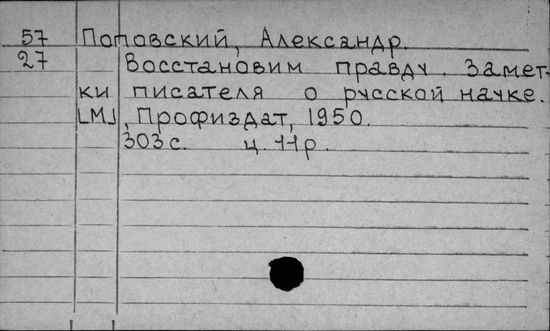 57 Поповский, Александр.
27 Восстановим правду. Замет-
ки писателя о русской науке.
[М], Профиздат, 1950.
303 с. ц. 11 р.